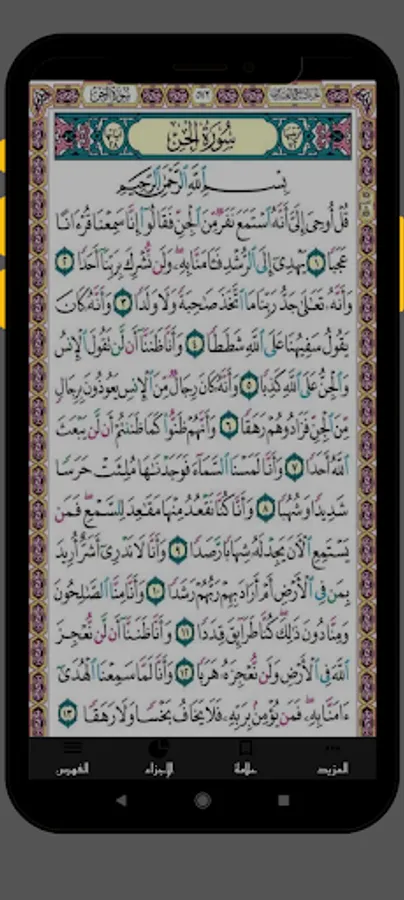 سُورَةُ الجِنّ
٥٧٢
سُورَةُ الجِنِّ
بِسْمِ اللَّهِ الرَّحْمَٰنِ الرَّحِيمِ
قُلْ أُوحِيَ إِلَيَّ أَنَّهُ اسْتَمَعَ نَفَرٌ مِّنَ الْجِنِّ فَقَالُوا إِنَّا سَمِعْنَا قُرْءَانًا
عَجَبًا ١ يَهْدِي إِلَى الرُّشْدِ فَـَٔامَنَّا بِهِ وَلَن نُّشْرِكَ بِرَبِّنَا أَحَدًا ٢
وَأَنَّهُ تَعَٰلَىٰ جَدُّ رَبِّنَا مَا اتَّخَذَ صَٰحِبَةً وَلَا وَلَدًا ٣ وَأَنَّهُ كَانَ
يَقُولُ سَفِيهُنَا عَلَى اللَّهِ شَطَطًا ٤ وَأَنَّا ظَنَنَّا أَن لَّن تَقُولَ الْإِنسُ
وَالْجِنُّ عَلَى اللَّهِ كَذِبًا ٥ وَأَنَّهُ كَانَ رِجَالٌ مِّنَ الْإِنسِ يَعُوذُونَ بِرِجَالٍ
مِّنَ الْجِنِّ فَزَادُوهُمْ رَهَقًا ٦ وَأَنَّهُمْ ظَنُّوا كَمَا ظَنَنتُمْ أَن لَّن يَبْعَثَ
اللَّهُ أَحَدًا ٧ وَأَنَّا لَمَسْنَا السَّمَآءَ فَوَجَدْنَٰهَا مُلِئَتْ حَرَسًا
شَدِيدًا وَشُهُبًا ٨ وَأَنَّا كُنَّا نَقْعُدُ مِنْهَا مَقَٰعِدَ لِلسَّمْعِ فَمَن
يَسْتَمِعِ الْآنَ يَجِدْ لَهُ شِهَابًا رَّصَدًا ٩ وَأَنَّا لَا نَدْرِي أَشَرٌّ أُرِيدَ
بِمَن فِي الْأَرْضِ أَمْ أَرَادَ بِهِمْ رَبُّهُمْ رَشَدًا ١٠ وَأَنَّا مِنَّا الصَّٰلِحُونَ
وَمِنَّا دُونَ ذَٰلِكَ كُنَّا طَرَآئِقَ قِدَدًا ١١ وَأَنَّا ظَنَنَّا أَن لَّن نُّعْجِزَ
اللَّهَ فِي الْأَرْضِ وَلَن نُّعْجِزَهُ هَرَبًا ١٢ وَأَنَّا لَمَّا سَمِعْنَا الْهُدَىٰ
ءَامَنَّا بِهِ فَمَن يُؤْمِن بِرَبِّهِ فَلَا يَخَافُ بَخْسًا وَلَا رَهَقًا ١٣
المزيد
علامة
الإجزاء
الفهرس